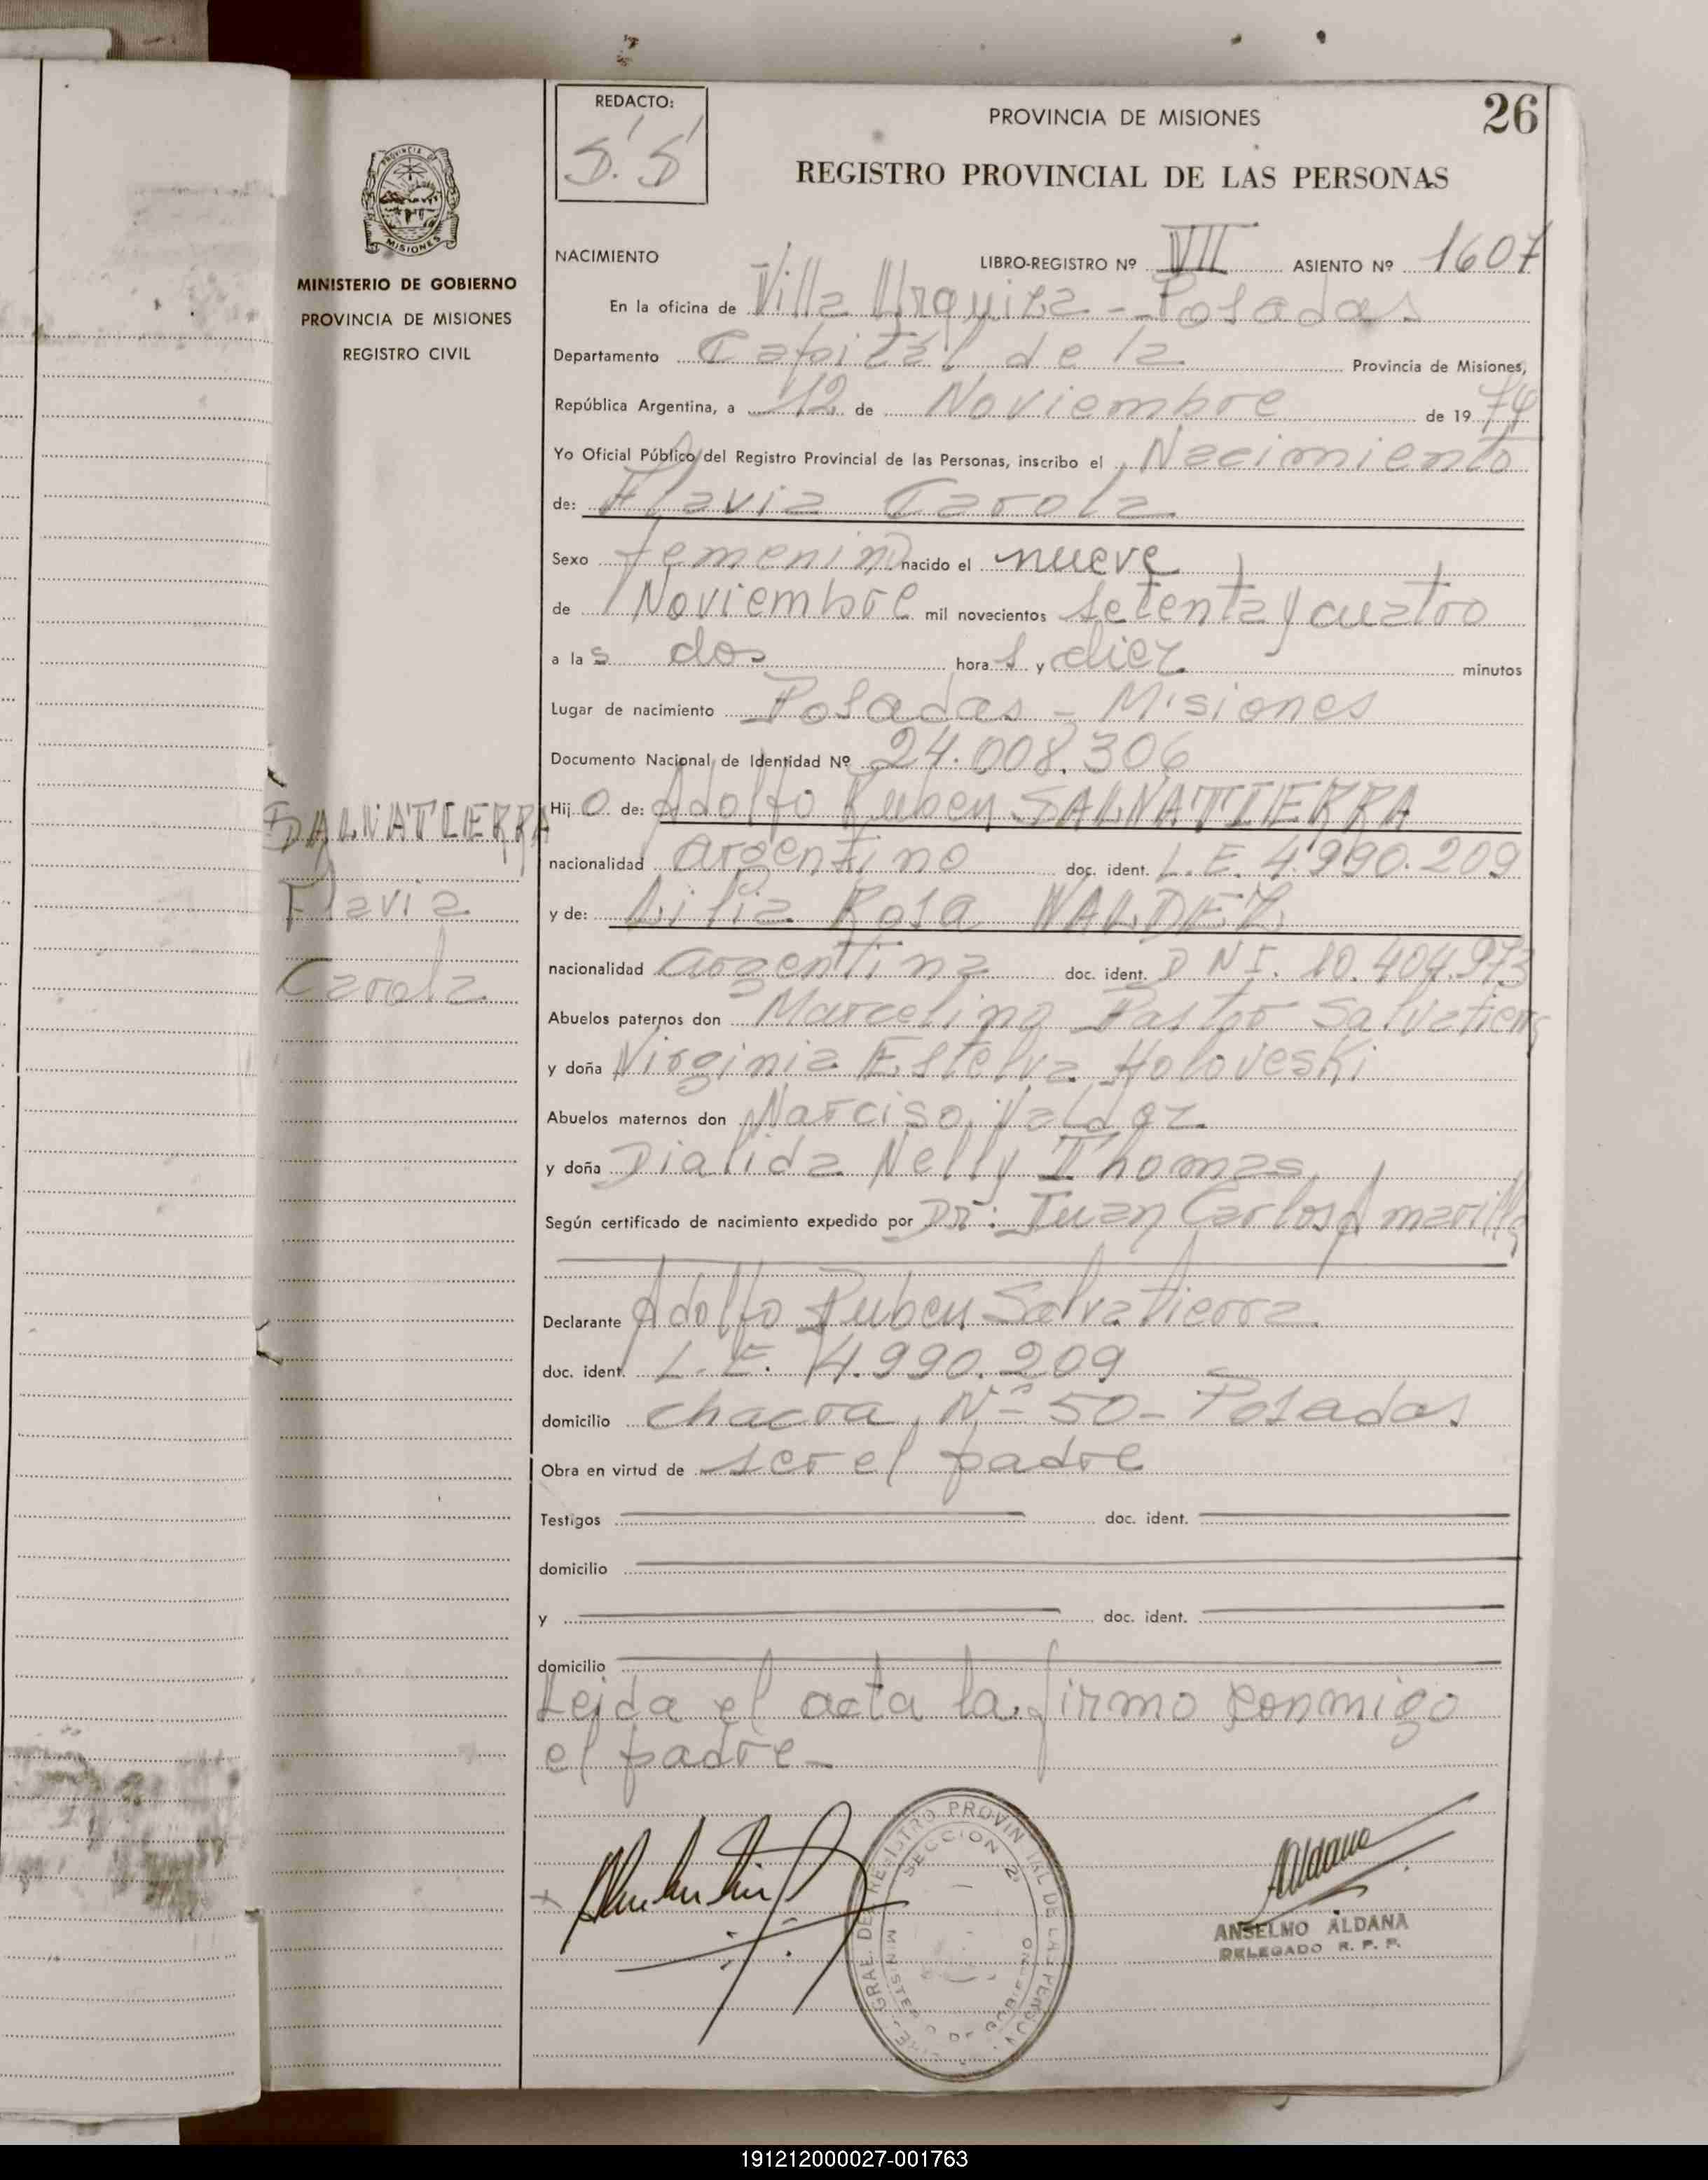 REDACTO:
S. S
PROVINCIA DE MISIONES
26
REGISTRO PROVINCIAL DE LAS PERSONAS
MISIONES
MINISTERIO DE GOBIERNO
PROVINCIA DE MISIONES
REGISTRO CIVIL
NACIMIENTO LIBRO-REGISTRO Nº VII ASIENTO Nº 1607
En la oficina de Villa Urquiza - Posadas
Departamento Capital de la Provincia de Misiones,
República Argentina, a 12 de Noviembre de 1974
Yo Oficial Público del Registro Provincial de las Personas, inscribo el Nacimiento
de: Flavia Carola
Sexo femenino nacido el nueve
de Noviembre mil novecientos setenta y cuatro
a las dos horas y diez minutos
Lugar de nacimiento Posadas - Misiones
Documento Nacional de Identidad Nº 24.008.306
SALVATIERRA
Hijo de: Adolfo Ruben SALVATIERRA
nacionalidad argentino doc. ident. L.E. 4.990.209
Flavia
y de: Lilia Rosa VALDEZ
Carola
nacionalidad argentina doc. ident. D N I. 10.404.973
Abuelos paternos don Marcelino Pastor Salvatierra
y doña Virginia Estelva Holoveski
Abuelos maternos don Narciso Valdez
y doña Dialida Nelly Thomas
Según certificado de nacimiento expedido por Dr: Juan Carlos Amarilla
Declarante Adolfo Ruben Salvatierra
doc. ident. L.E. 4.990.209
domicilio chacra Nº 50 - Posadas
Obra en virtud de ser el padre
Testigos doc. ident.
domicilio
y doc. ident.
domicilio
Leida el acta la firmo conmigo
el padre -
SECCION 2
MINISTERIO DE GOBIERNO
Aldana
ANSELMO ALDANA
DELEGADO R. P. P.
191212000027-001763